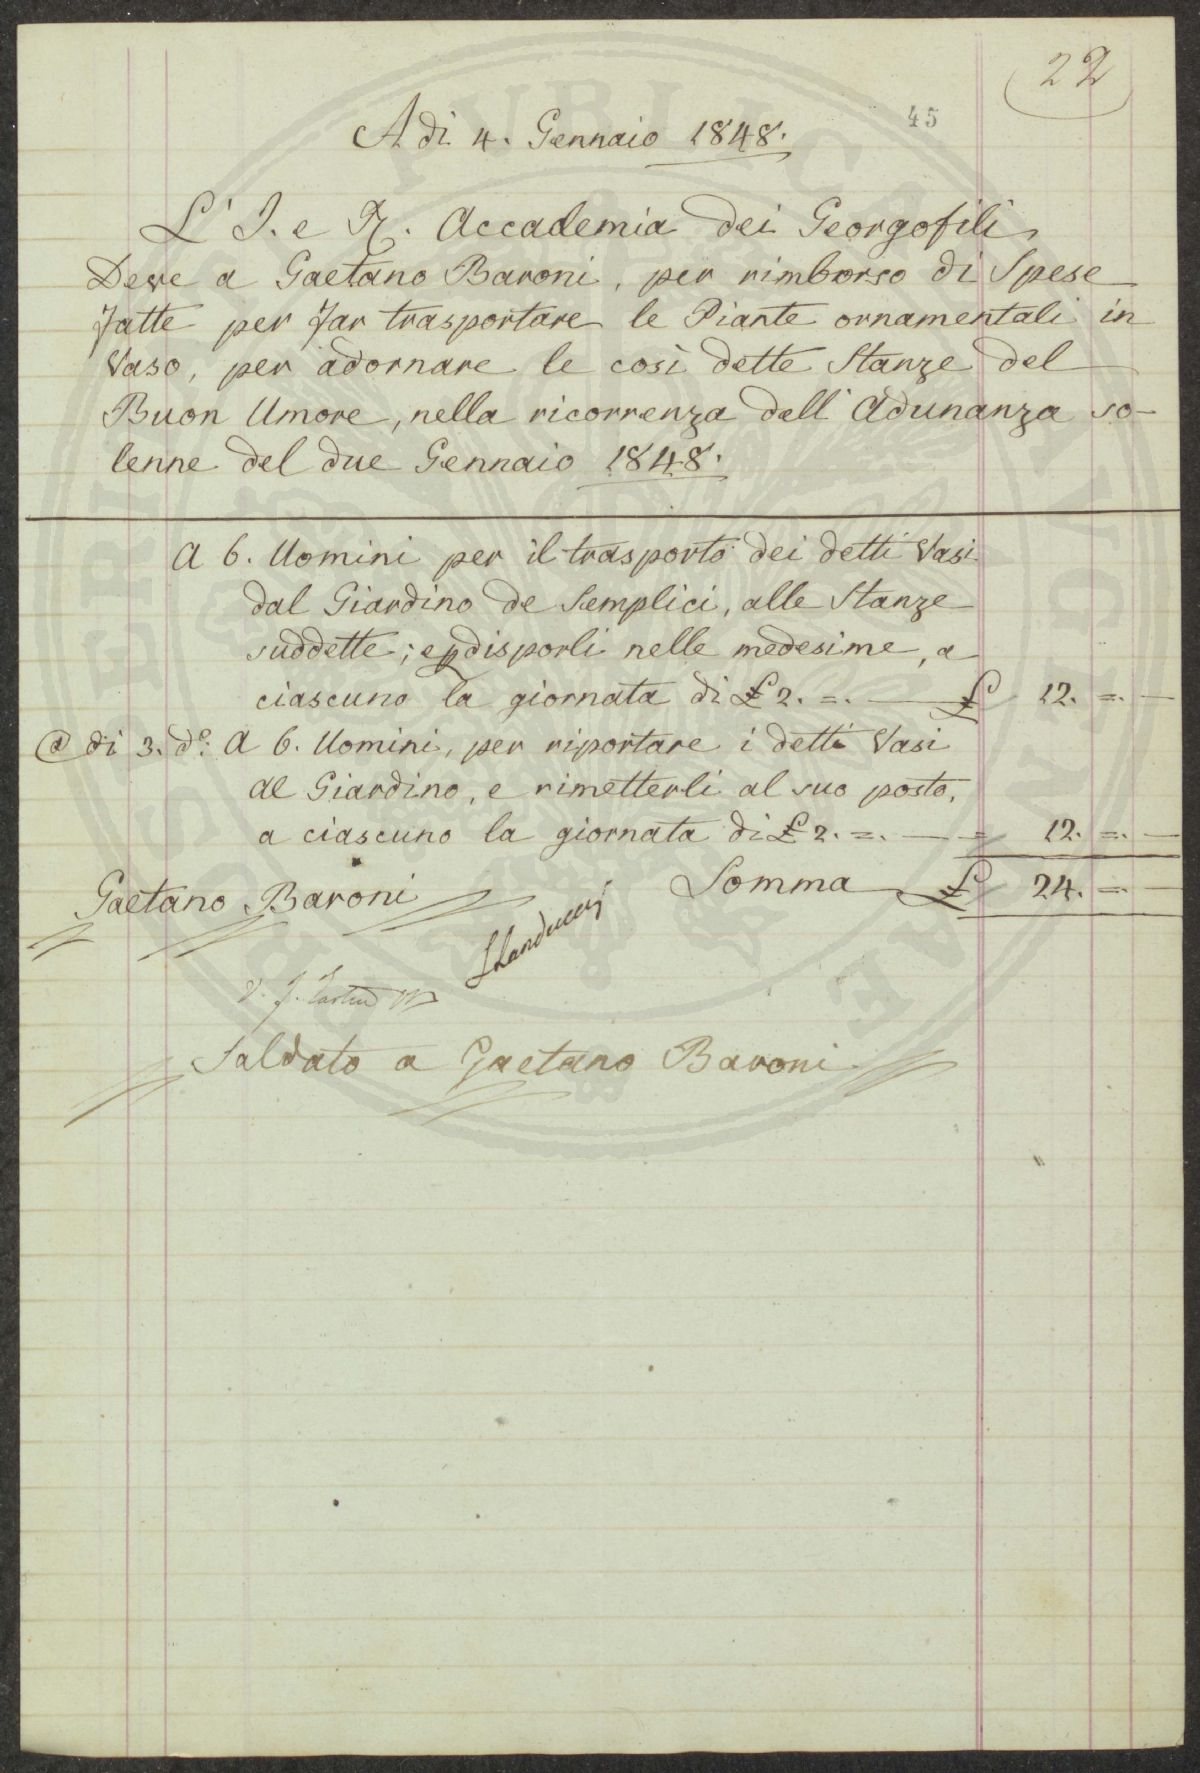 22
45
A dì 4. Gennaio 1848.
L' I. e R. Accademia dei Georgofili
Deve a Gaetano Baroni, per rimborso di Spese
fatte per far trasportare le Piante ornamentali in
Vaso, per adornare le così dette Stanze del
Buon Umore, nella ricorrenza dell' Adunanza so-
lenne del due Gennaio 1848.
A 6. Uomini per il trasporto dei detti Vasi
dal Giardino de Semplici, alle Stanze
suddette; e disporli nelle medesime, a
ciascuno la giornata di £ 2. =. — £ 12. =. —
A di 3. d.o: A 6. Uomini, per riportare i detti Vasi
al Giardino, e rimetterli al suo posto,
a ciascuno la giornata di £ 2. =. — = 12. =. —
Somma £ 24. =. —
Gaetano Baroni
Saldato a Gaetano Baroni